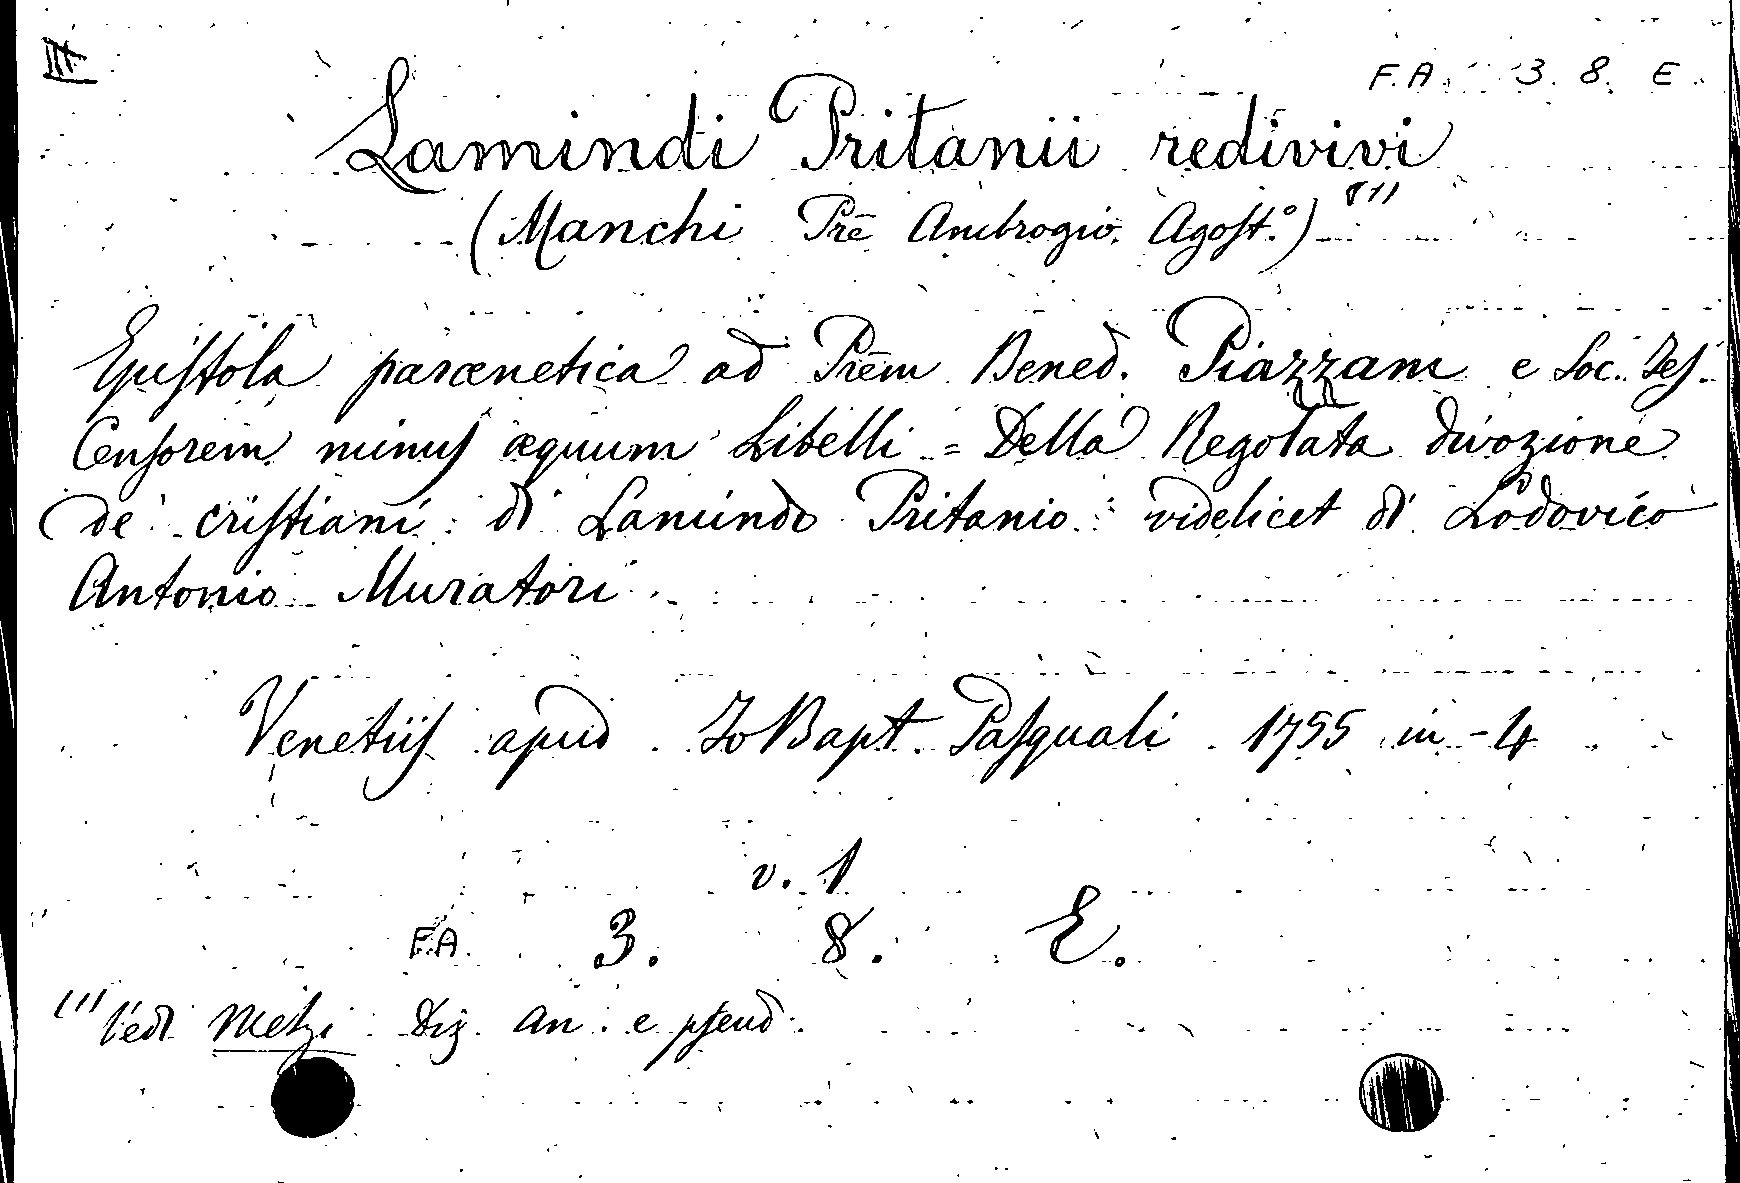 III
F.A. 3. 8. E.
Lamindi Pritanii redivivi
(Manchi Prē Ambrogio Agost.°) (1)
Epistola parænetica ad Prēm Bened. Piazzam e Soc. Jes.
Censorem minus æquum Libelli = Della Regolata divozione
de' cristiani: di Lamindo Pritanio: videlicet di Lodovico
Antonio Muratori
Venetiis apud Jo Bapt. Pasquali 1755 in-4
v. 1
F.A. 3. 8. E.
(1) Vedi Melzi Diz. An. e pseud.